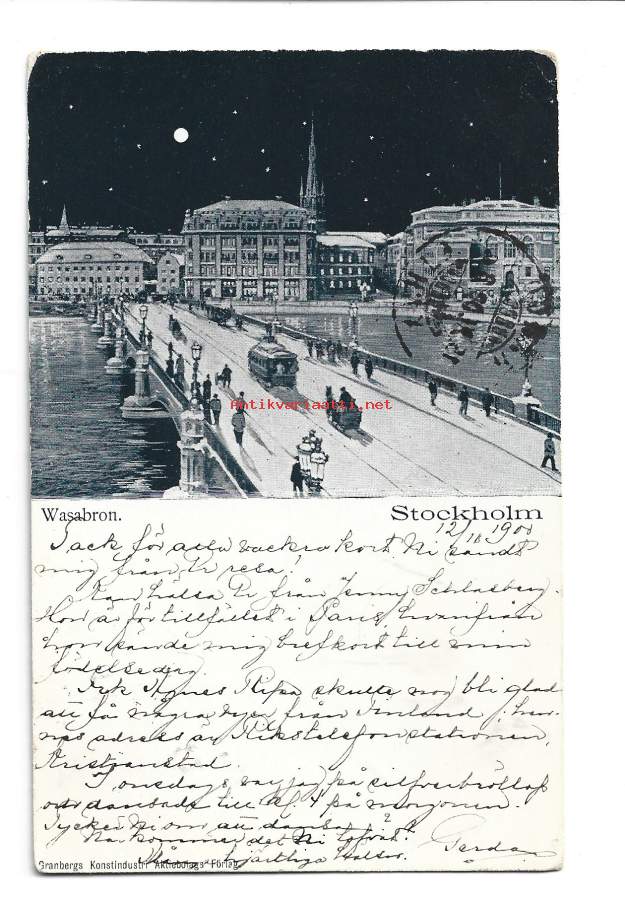 Antikvariaatti.net
Wasabron.
Stockholm
12/10 1900
Tack för alla vackra kort Ni sändt
mig från Er resa!
Kan hälsa Er från Jenny Schlasberg.
Hon är för tillfället i Paris, hvarifrån
hon sände mig brefkort till min
födelsedag.
Frk Agnes Ripa skulle nog bli glad
att få några vyer från Finland, hen-
nes adress är Rikstelefonstationen,
Kristianstad.
I onsdags var jag på silfverbröllop
och dansade till kl. 4 på morgonen.
Tycker Ni om att dansa?
Na kommer det Ni
hjärtliga hälsn. Gerda
Granbergs Konstindustri Aktiebolags Förlag.